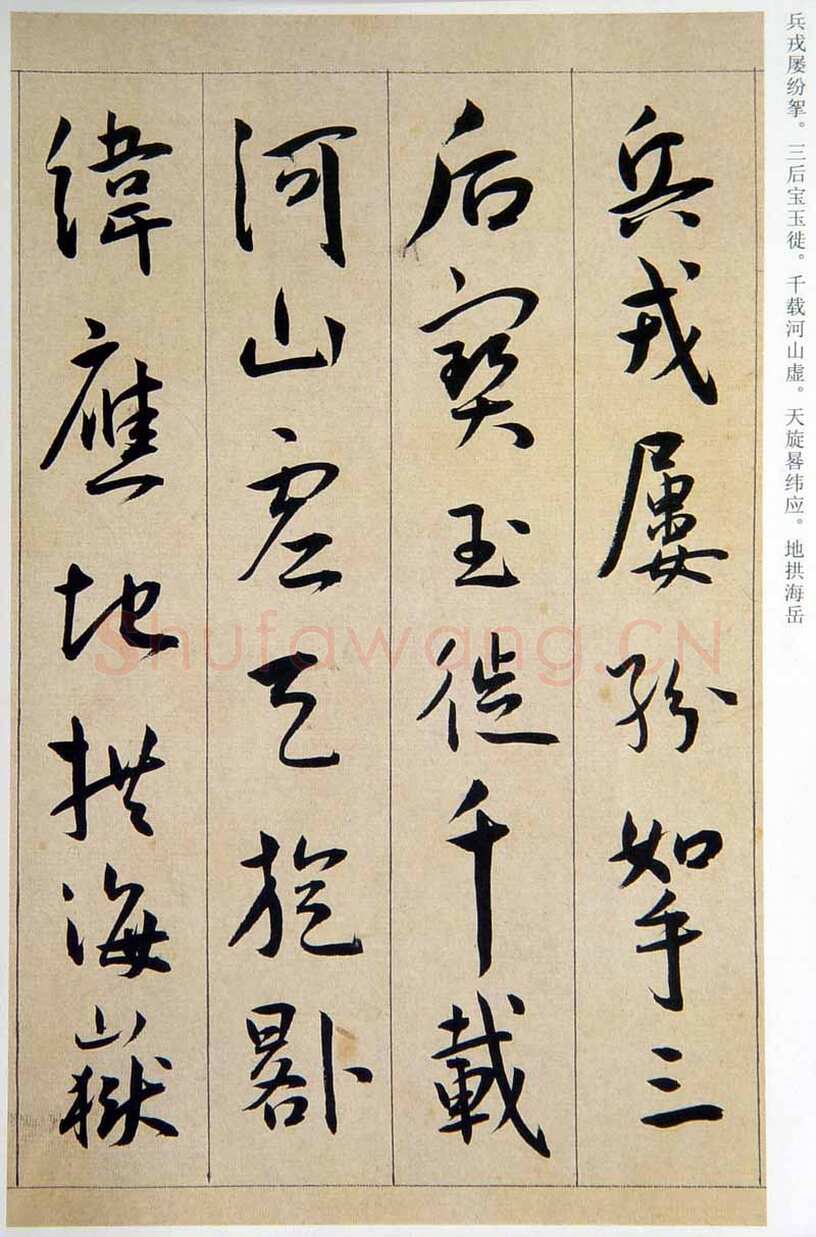 兵戎屡纷挐。三后宝玉徙。千载河山虚。天旋晷纬应。地拱海岳
兵戎屢紛挐三
后寶玉徙千載
河山虛天旋晷
緯應地拱海嶽
Shufawang.CN